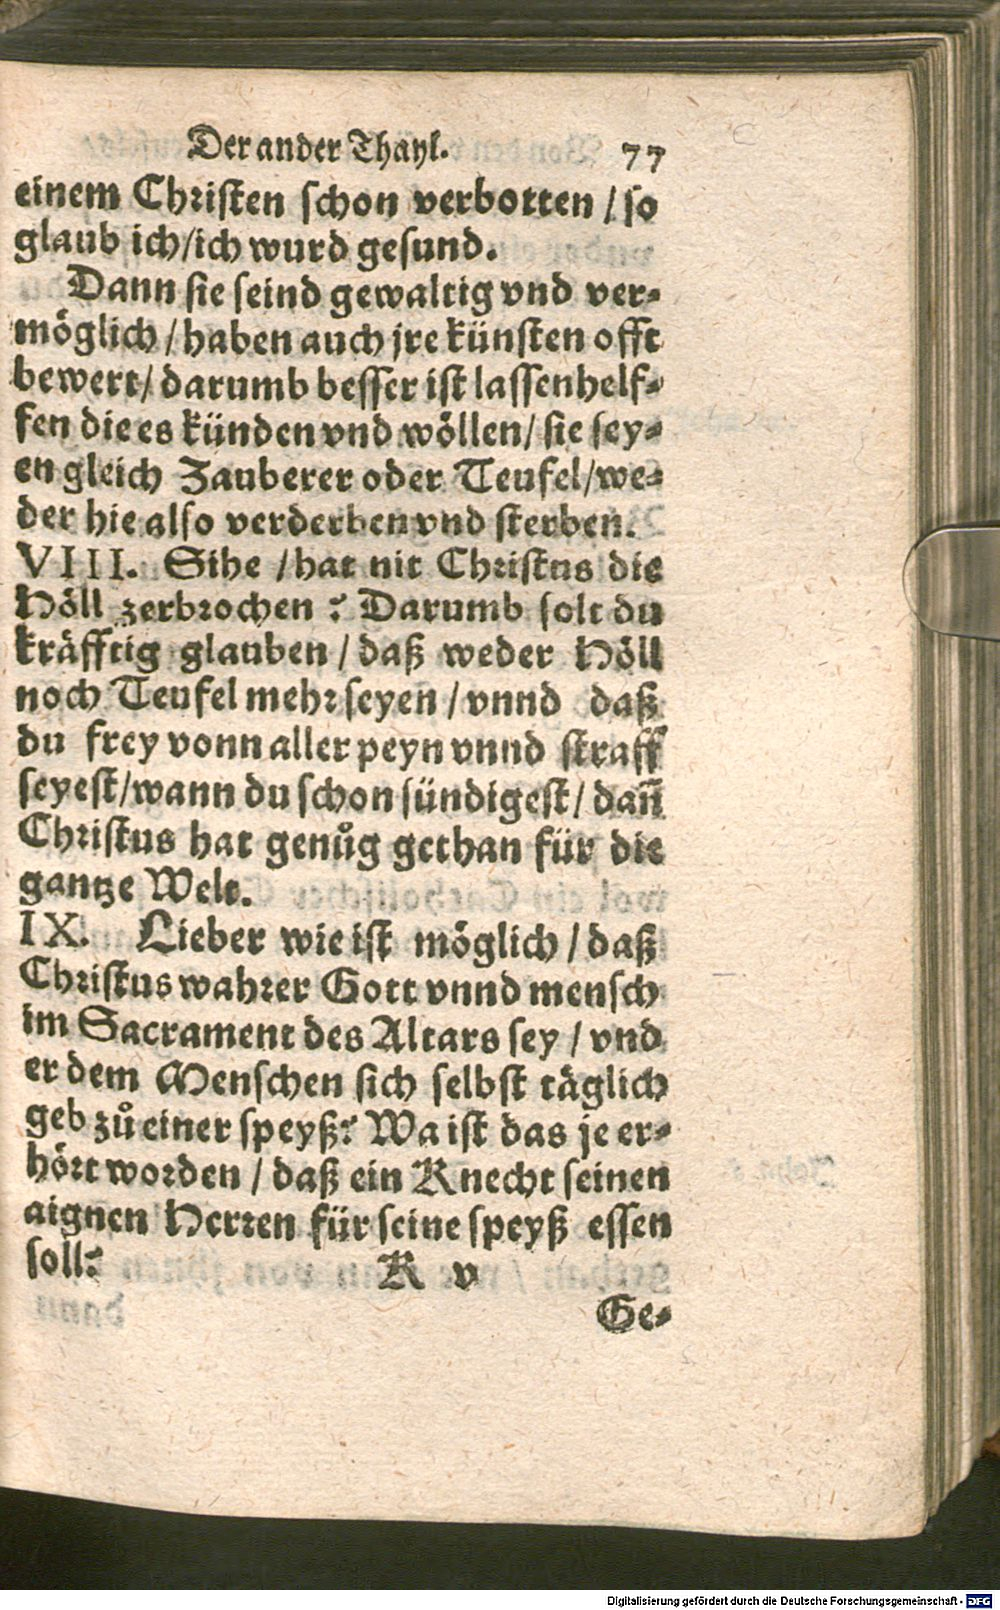 Der ander Thayl. 77
einem Christen schon verbotten / so
glaub ich/ich wurd gesund.
Dann sie seind gewaltig vnd ver-
möglich / haben auch jre künsten offt
bewert/ darumb besser ist lassen helf-
fen die es künden vnd wöllen/ sie sey-
en gleich Zauberer oder Teufel/we-
der hie also verderben vnd sterben.
VIII. Sihe / hat nit Christus die
Höll zerbrochen? Darumb solt du
kräfftig glauben / daß weder Höll
noch Teufel mehr seyen / vnnd daß
du frey vonn aller peyn vnnd straff
seyest/wann du schon sündigest/ dañ
Christus hat genůg gethan für die
gantze Welt.
IX. Lieber wie ist möglich / daß
Christus wahrer Gott vnnd mensch
im Sacrament des Altars sey / vnd
er dem Menschen sich selbst täglich
geb zů einer speyß? Wa ist das je er-
hört worden / daß ein Knecht seinen
aignen Herren für seine speyß essen
soll? K v
Ge-
Digitalisierung gefördert durch die Deutsche Forschungsgemeinschaft - DFG